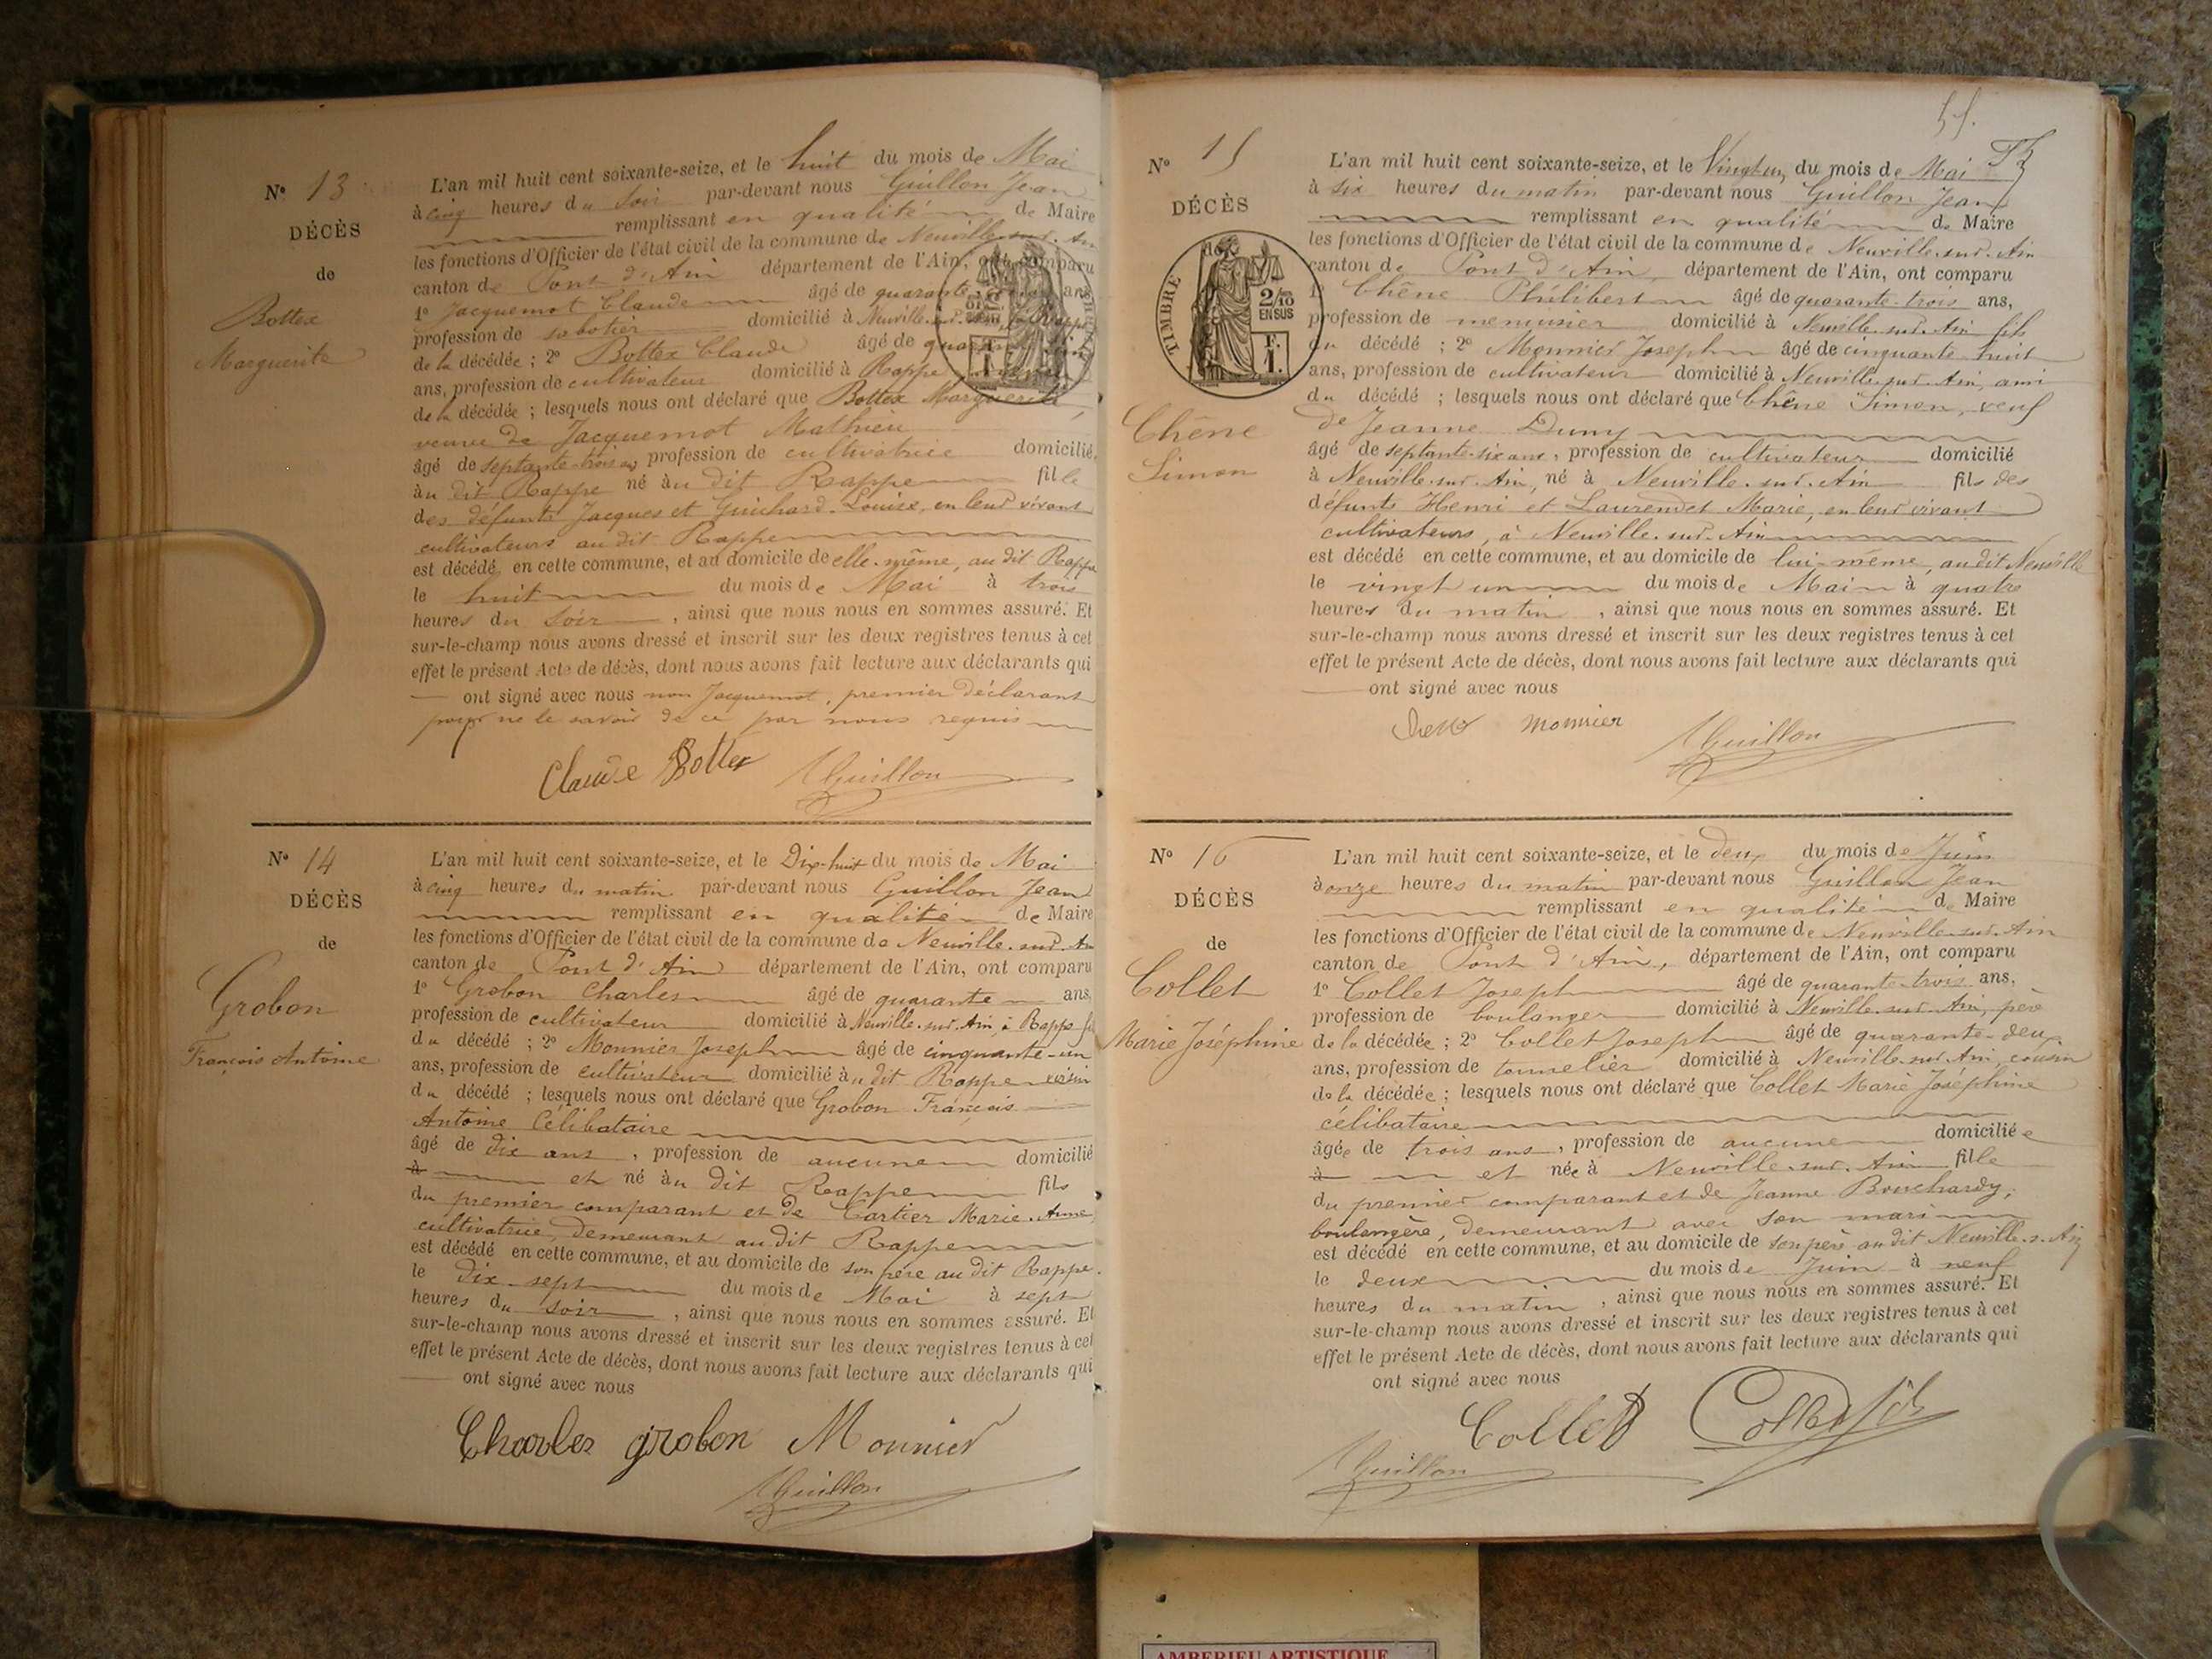 N° 13
DÉCÈS
de
Bottex
Marguerite
L'an mil huit cent soixante-seize, et le huit du mois de Mai
à cinq heures du soir par-devant nous Guillon Jean
remplissant en qualité de Maire
les fonctions d'Officier de l'état civil de la commune de Neuville-sur-Ain
canton de Pont d'Ain département de l'Ain, ont comparu
1° Jacquemot Claude âgé de quarante ans
profession de sabotier domicilié à Neuville-sur-Ain,
de la décédée ; 2° Bottex Claude âgé de
ans, profession de cultivateur domicilié à Rappe
de la décédée ; lesquels nous ont déclaré que Bottex Marguerite,
veuve de Jacquemot Mathieu
âgé de septante-trois ans profession de cultivatrice domicilié
au dit Rappe né au dit Rappe fille
des défunts Jacques et Guichard Louise, en leur vivant
cultivateurs au dit Rappe
est décédé en cette commune, et au domicile de elle-même, au dit Rappe
le huit du mois de Mai à trois
heures du soir, ainsi que nous nous en sommes assuré. Et
sur-le-champ nous avons dressé et inscrit sur les deux registres tenus à cet
effet le présent Acte de décès, dont nous avons fait lecture aux déclarants qui
ont signé avec nous non Jacquemot, premier déclarant
pour ne le savoir de ce par nous requis
Claude Bottex Guillon
N° 14
DÉCÈS
de
Grobon
François Antoine
L'an mil huit cent soixante-seize, et le Dix-huit du mois de Mai
à cinq heures du matin par-devant nous Guillon Jean
remplissant en qualité de Maire
les fonctions d'Officier de l'état civil de la commune de Neuville-sur-Ain
canton de Pont d'Ain département de l'Ain, ont comparu
1° Grobon Charles âgé de quarante ans,
profession de cultivateur domicilié à Neuville-sur-Ain, à Rappe
du décédé ; 2° Monnier Joseph âgé de cinquante-un
ans, profession de cultivateur domicilié au dit Rappe voisin
du décédé ; lesquels nous ont déclaré que Grobon François
Antoine Célibataire
âgé de dix ans, profession de aucune domicilié
à et né au dit Rappe fils
du premier comparant et de Cartier Marie-Anne
cultivatrice, demeurant au dit Rappe
est décédé en cette commune, et au domicile de son père au dit Rappe.
le dix-sept du mois de Mai à sept
heures du soir, ainsi que nous nous en sommes assuré. Et
sur-le-champ nous avons dressé et inscrit sur les deux registres tenus à cet
effet le présent Acte de décès, dont nous avons fait lecture aux déclarants qui
ont signé avec nous
Charles grobon Monnier
Guillon
N° 15
DÉCÈS
de
TIMBRE
2/10
EN SUS
F.
1.
Chêne
Simon
L'an mil huit cent soixante-seize, et le Vingt un du mois de Mai
à six heures du matin par-devant nous Guillon Jean
remplissant en qualité de Maire
les fonctions d'Officier de l'état civil de la commune de Neuville-sur-Ain
canton de Pont d'Ain, département de l'Ain, ont comparu
1° Chêne Philibert âgé de quarante-trois ans,
profession de menuisier domicilié à Neuville-sur-Ain fils
du décédé ; 2° Monnier Joseph âgé de cinquante-huit
ans, profession de cultivateur domicilié à Neuville-sur-Ain, ami
du décédé ; lesquels nous ont déclaré que Chêne Simon, veuf
de Jeanne Dumy
âgé de septante-six ans, profession de cultivateur domicilié
à Neuville-sur-Ain, né à Neuville-sur-Ain fils des
défunts Henri et Laurendet Marie, en leur vivant
cultivateurs, à Neuville-sur-Ain
est décédé en cette commune, et au domicile de lui-même, au dit Neuville
le vingt un du mois de Mai à quatre
heures du matin, ainsi que nous nous en sommes assuré. Et
sur-le-champ nous avons dressé et inscrit sur les deux registres tenus à cet
effet le présent Acte de décès, dont nous avons fait lecture aux déclarants qui
ont signé avec nous
monnier Guillon
N° 16
DÉCÈS
de
Collet
Marie Joséphine
L'an mil huit cent soixante-seize, et le deux du mois de Juin
à onze heures du matin par-devant nous Guillon Jean
remplissant en qualité de Maire
les fonctions d'Officier de l'état civil de la commune de Neuville-sur-Ain
canton de Pont d'Ain, département de l'Ain, ont comparu
1° Collet Joseph âgé de quarante-trois ans,
profession de boulanger domicilié à Neuville-sur-Ain, père
de la décédée ; 2° Collet Joseph âgé de quarante-deux
ans, profession de tonnelier domicilié à Neuville-sur-Ain, cousin
de la décédée ; lesquels nous ont déclaré que Collet Marie Joséphine
célibataire
âgée de trois ans, profession de aucune domiciliée
à et née à Neuville-sur-Ain fille
du premier comparant et de Jeanne Bouchardy,
boulangère, demeurant avec son mari
est décédé en cette commune, et au domicile de son père au dit Neuville-s-Ain
le deux du mois de Juin à neuf
heures du matin, ainsi que nous nous en sommes assuré. Et
sur-le-champ nous avons dressé et inscrit sur les deux registres tenus à cet
effet le présent Acte de décès, dont nous avons fait lecture aux déclarants qui
ont signé avec nous
Collet Collet
Guillon
AMBERIEU ARTISTIQUE